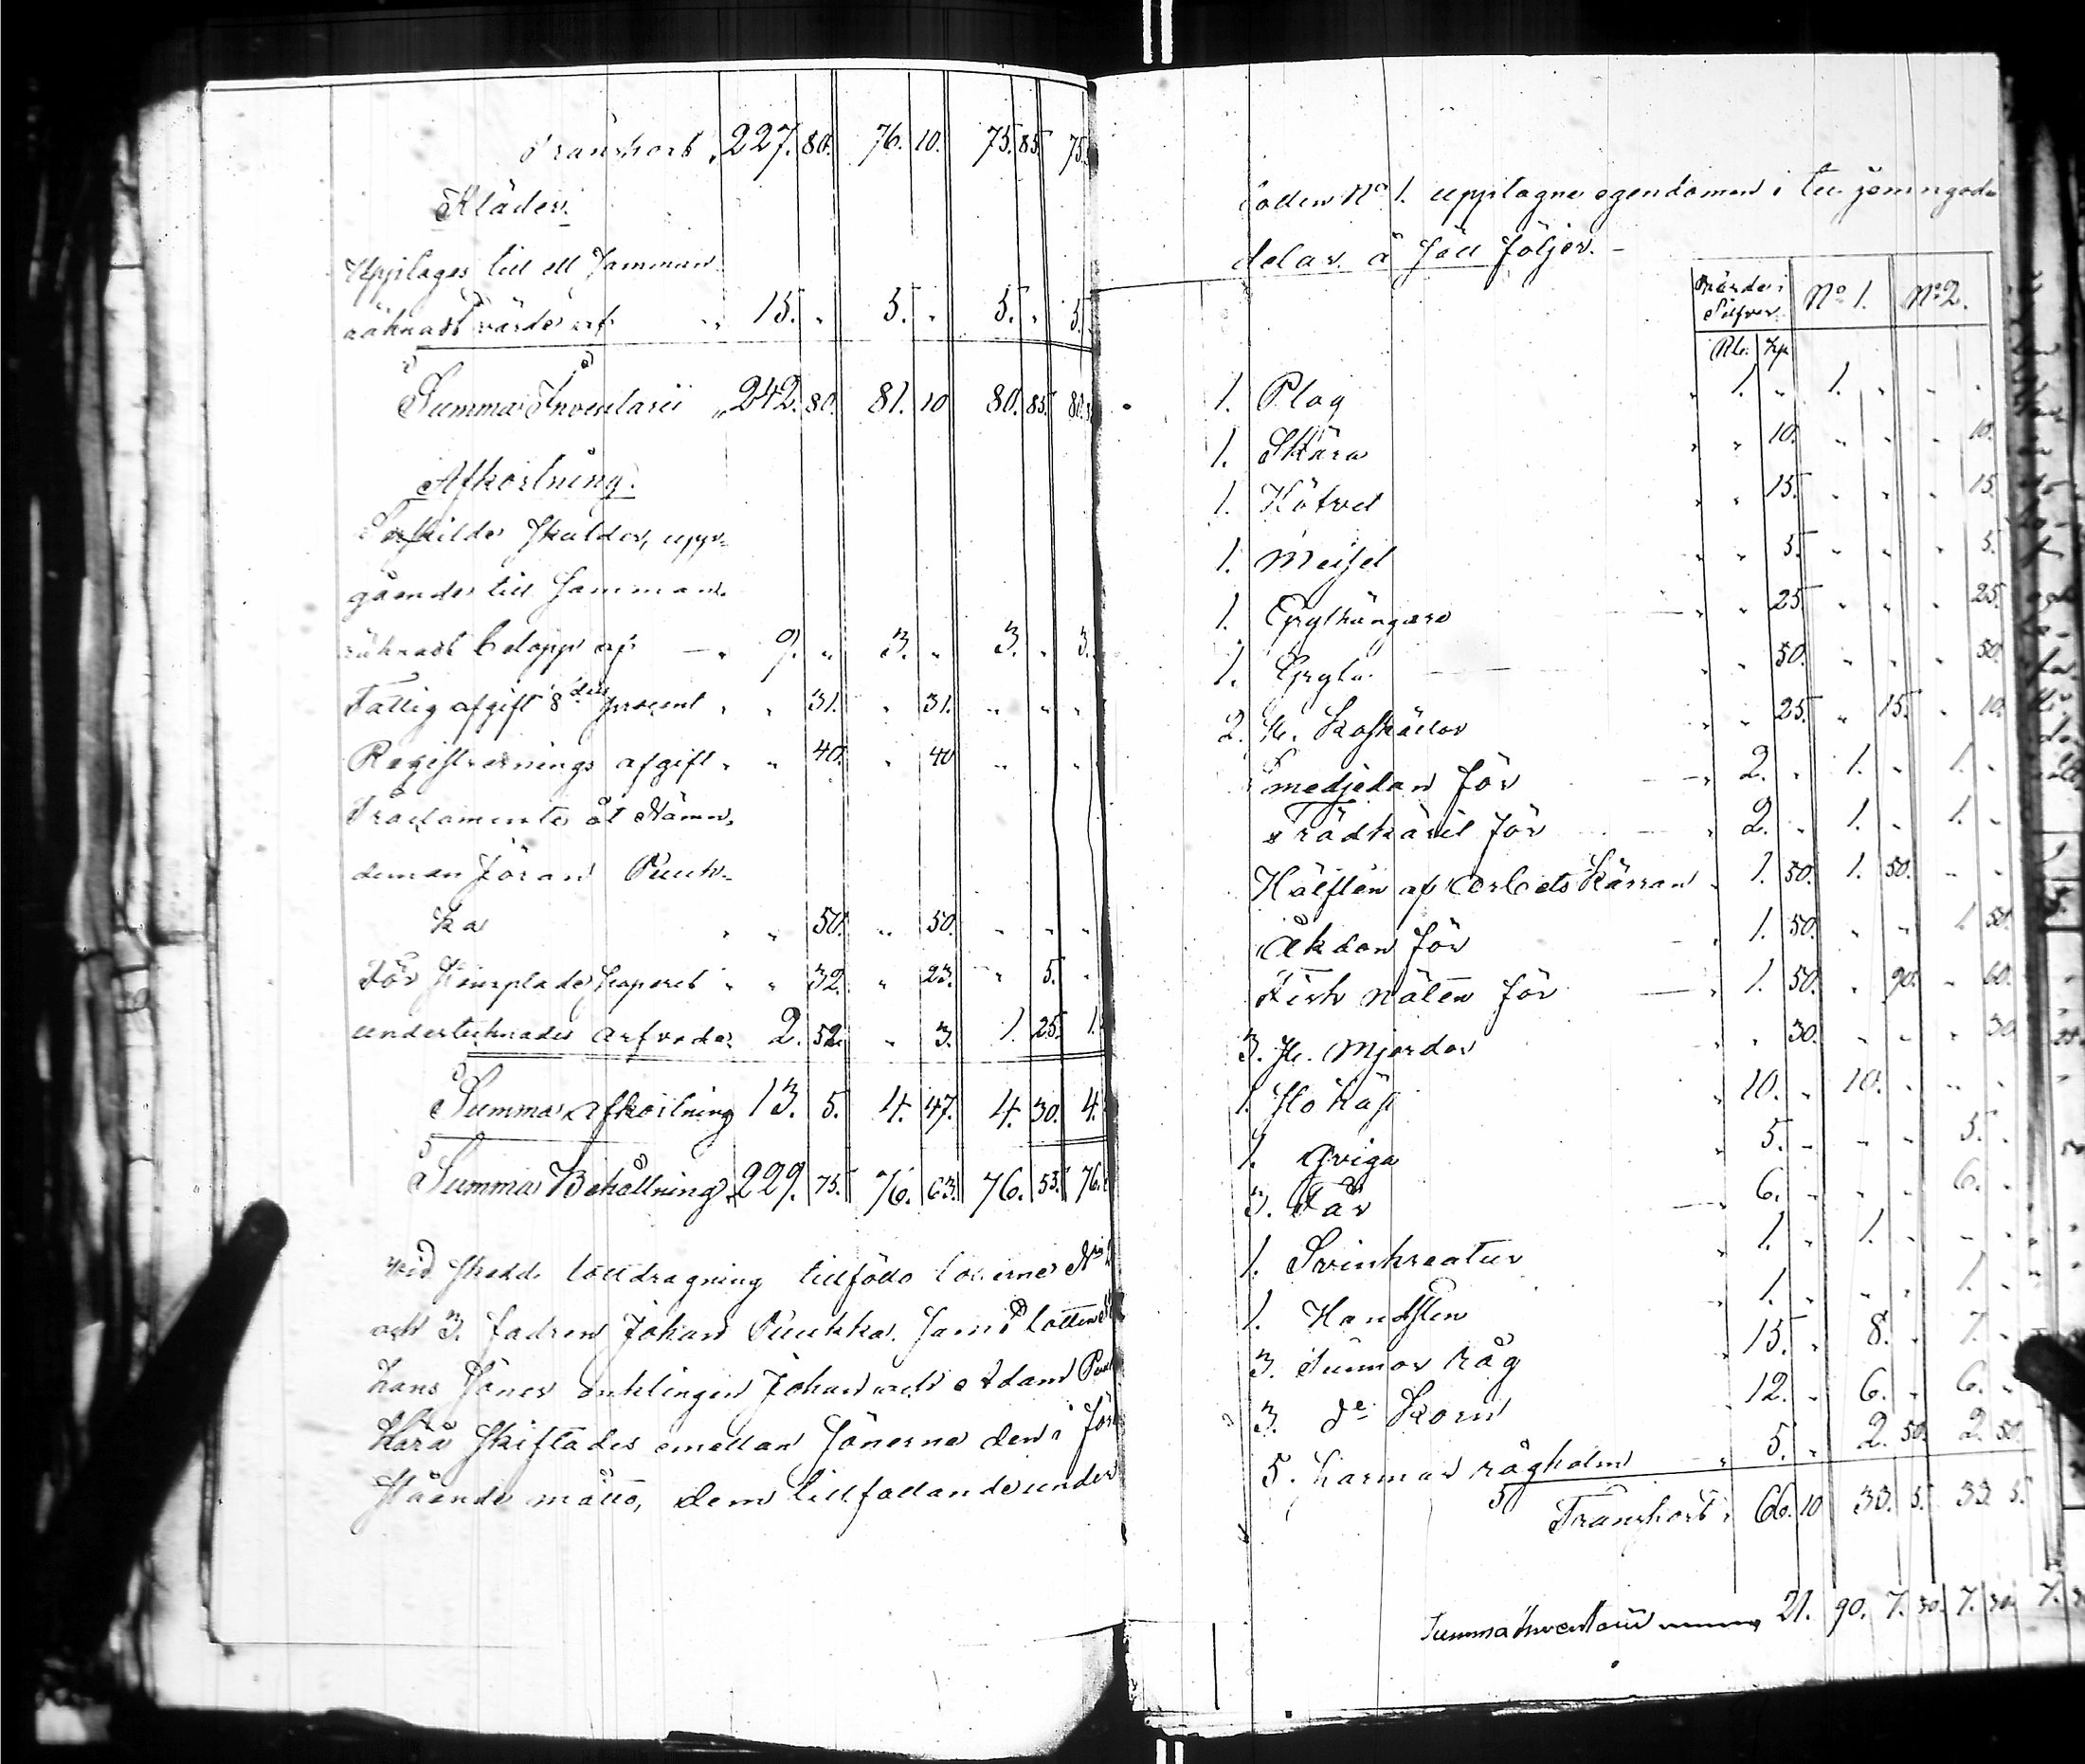 Transport „ 227. 80. 76. 10. 75. 85. 75.
Kläder.
Upptages till ett samman
räknadt värde af „ 15. „ 5. „ 5. „ 5.
Summa Inventarii „ 242. 80. 81. 10 80. 85. 80.
Afkortning.
Särskilde skulder, upp-
gående till samman-
räknadt belopp af — „ 9. „ 3. „ 3. „ 3.
Fattig afgift 8dels procent „ „ 31. „ 31. „ „ „
Registrerings afgift „ „ 40. „ 40 „ „
Tractamente åt Nämn-
deman Jöran Puuk-
ka „ „ 50. „ 50. „ „ „
För stemplade papperet „ „ 32. „ 23. „ 5. „
undertecknades arfvode 2. 52. „ 3. 1. 25. 1.
Summa afkortning 13. 5. 4. 47. 4. 30. 4.
Summa Behållning „ 229. 75. 76. 63. 76. 55. 76.
vid skedd lottdragning tillföllo lotterne
och 3. fadren Johan Puukka. samt lotten
hans söner änklingen Johan och Adam
Härå skiftades emellan sönerne den i
stående måtto, dem tillfallande under
lotten No 1. upptagne egendomen i tu jemngoda
delar å sätt följer. —
Värde i Silfver. No 1. No 2.
Rb. Kp
1. Plog „ 1. „ 1. „ „ „
1. Skära „ „ 10. „ „ „ 10.
1. Nötvel „ „ 15. „ „ „ 15.
1. Meisel „ „ 5. „ „ „ 5.
1. Grythängare „ „ 25 „ „ „ 25.
1. Gryta — „ „ 50. „ „ „ 50.
2. st. Koskällor „ „ 25. „ 15. „ 10.
Smedjedon för — „ 2. „ 1. „ 1. „
Trädkäril för — „ 2. „ 1. „ 1. „
Hälften af Arbets Kärran „ 1. 50. 1. 50. „ „
Åkdon för — „ 1. 50. „ „ 1. 50.
Fisk näten för — „ 1. 50. „ 90. „ 60.
3. st. Mjerdor „ „ 30. „ „ „ 30
1. Sto häst „ 10. „ 10. „ „ „
1. Qviga „ 5. „ „ „ 5. „
3. Får — „ 6. „ „ „ 6. „
1. Svinkreatur „ 1. „ 1. „ „ „
1. Handsten „ 1. „ „ „ 1. „
3. Tunnor Råg „ 15. „ 8. „ 7. „
3. do Korn „ 12. „ 6. „ 6. „
5. Karmar råghalm „ 5. „ 2. 50. 2. 50.
Transport „ 66. 10 33. 5. 33. 5.
Summa Inventarii 21. 90. 7. 30. 7. 30. 7.